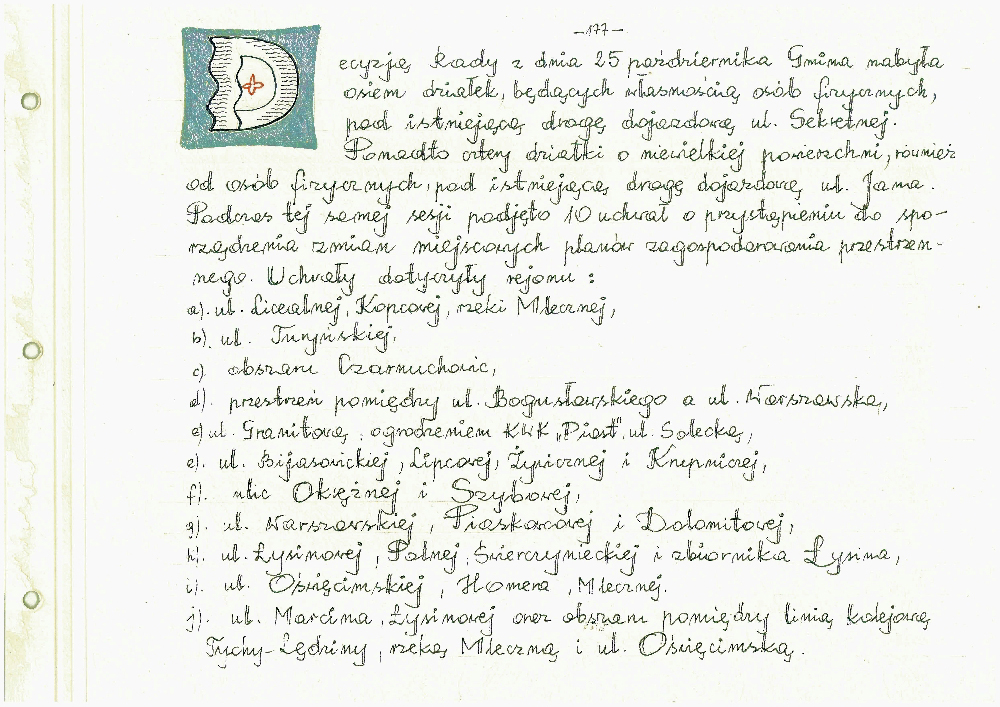 -177-
Decyzją Rady z dnia 25 października Gmina nabyła
osiem działek, będących własnością osób fizycznych,
pod istniejącą drogę dojazdową ul. Sekretnej.
Ponadto cztery działki o niewielkiej powierzchni, również
od osób fizycznych, pod istniejącą drogę dojazdową ul. Jama.
Podczas tej samej sesji podjęto 10 uchwał o przystąpieniu do spo-
rządzenia zmian miejscowych planów zagospodarowania przestrzen-
nego. Uchwały dotyczyły rejonu :
a). ul. Licealnej, Kopcowej, rzeki Mlecznej,
b). ul. Turyńskiej,
c). obszaru Czarnuchowic,
d). przestrzeń pomiędzy ul. Bogusławskiego a ul. Warszawską,
e) ul. Granitową, ogrodzeniem KWK „Piast", ul. Solecką,
e). ul. Bijasowickiej, Lipcowej, Żywicznej i Krupniczej,
f). ulic Okrężnej i Szybowej,
g). ul. Warszawskiej, Piaskowej i Dolomitowej,
h). ul. Łysinowej, Polnej, Świerczynieckiej i zbiornika Łysina,
i). ul. Oświęcimskiej, Homera, Mlecznej.
j). ul. Marcina, Łysinowej oraz obszaru pomiędzy linią kolejową
Tychy-Lędziny, rzeką Mleczną i ul. Oświęcimską.